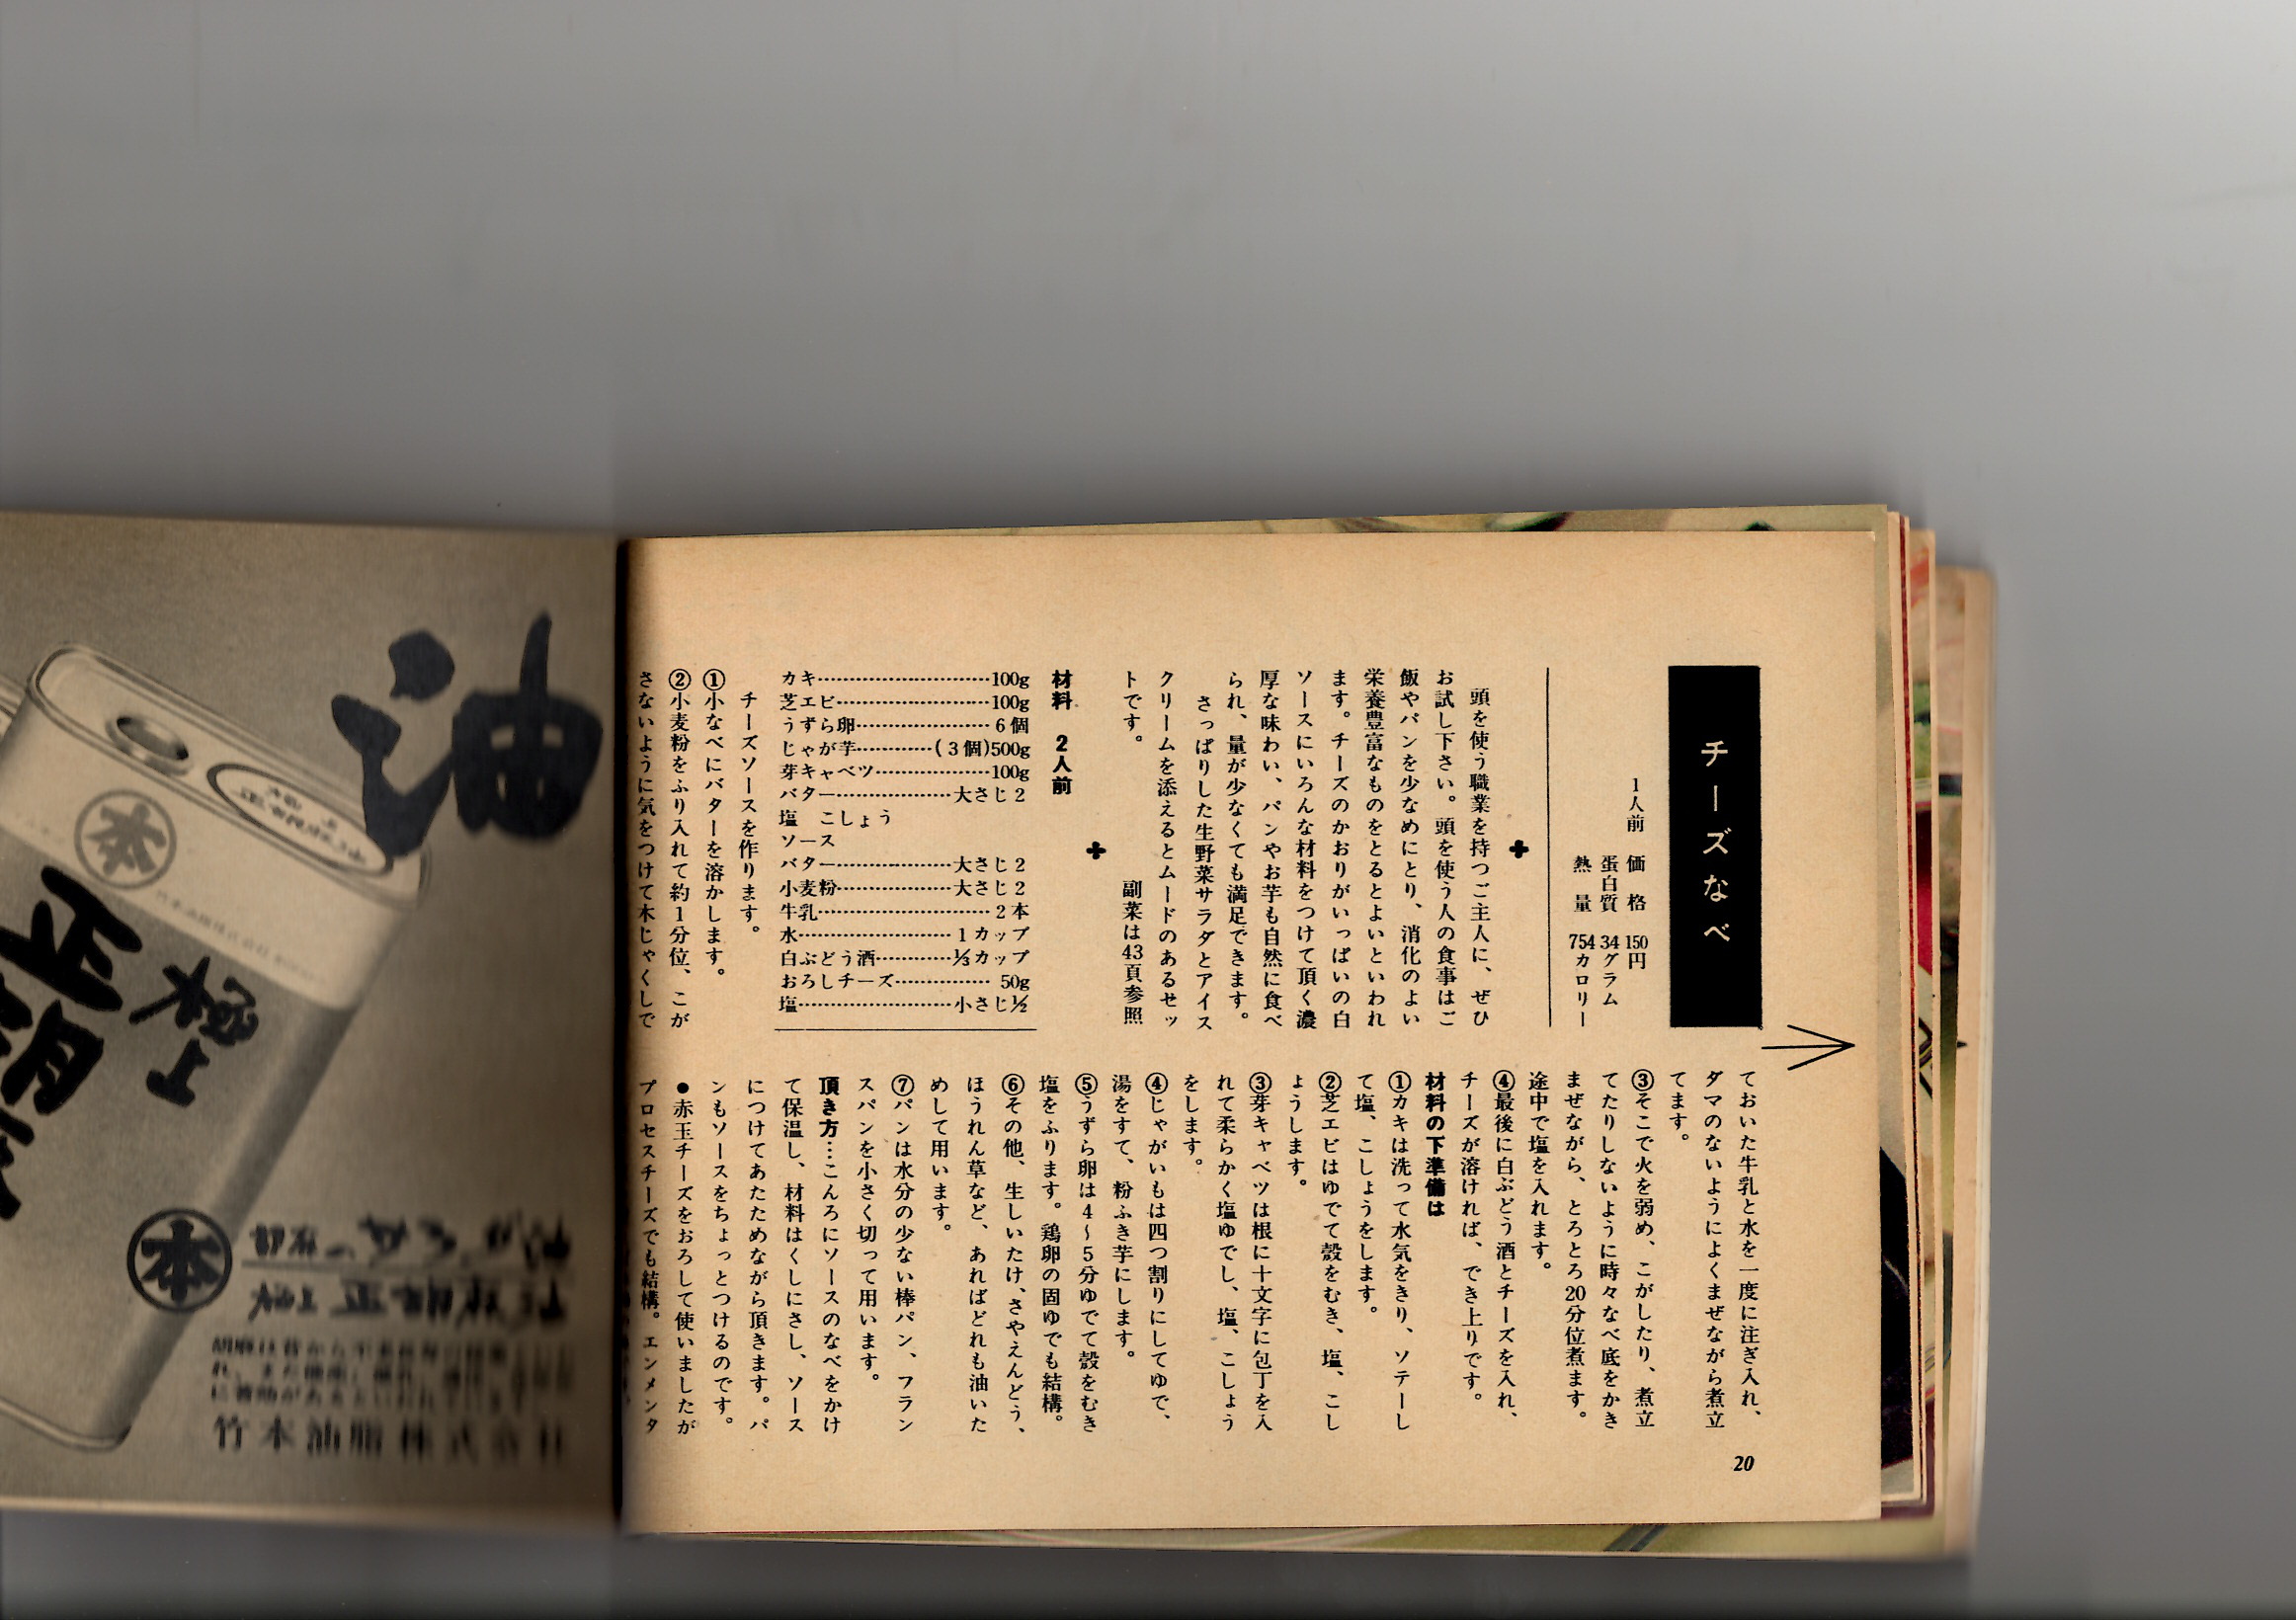 チーズなべ
1人前 価格 150円
蛋白質 34グラム
熱量 754カロリー
頭を使う職業を持つご主人に、ぜひ
お試し下さい。頭を使う人の食事はご
飯やパンを少なめにとり、消化のよい
栄養豊富なものをとるとよいといわれ
ます。チーズのかおりがいっぱいの白
ソースにいろんな材料をつけて頂く濃
厚な味わい、パンやお芋も自然に食べ
られ、量が少なくても満足できます。
さっぱりした生野菜サラダとアイス
クリームを添えるとムードのあるセッ
トです。 副菜は43頁参照
材料 2人前
カキ……100g
芝エビ……100g
うずら卵……6個
じゃが芋……(3個)500g
芽キャベツ……100g
バター……大さじ2
塩 こしょう
ソース
バター……大さじ2
小麦粉……大さじ2
牛乳……2本
水……1カップ
白ぶどう酒……⅓カップ
おろしチーズ……50g
塩……小さじ½
チーズソースを作ります。
①小なべにバターを溶かします。
②小麦粉をふり入れて約1分位、こが
さないように気をつけて木じゃくしで
ておいた牛乳と水を一度に注ぎ入れ、
ダマのないようによくまぜながら煮立
てます。
③そこで火を弱め、こがしたり、煮立
てたりしないように時々なべ底をかき
まぜながら、とろとろ20分位煮ます。
途中で塩を入れます。
④最後に白ぶどう酒とチーズを入れ、
チーズが溶ければ、でき上りです。
材料の下準備は
①カキは洗って水気をきり、ソテーし
て塩、こしょうをします。
②芝エビはゆでて殻をむき、塩、こし
ょうします。
③芽キャベツは根に十文字に包丁を入
れて柔らかく塩ゆでし、塩、こしょう
をします。
④じゃがいもは四つ割りにしてゆで、
湯をすて、粉ふき芋にします。
⑤うずら卵は4〜5分ゆでて殻をむき
塩をふります。鶏卵の固ゆでも結構。
⑥その他、生しいたけ、さやえんどう、
ほうれん草など、あればどれも油いた
めして用います。
⑦パンは水分の少ない棒パン、フラン
スパンを小さく切って用います。
頂き方…こんろにソースのなべをかけ
て保温し、材料はくしにさし、ソース
につけてあたためながら頂きます。パ
ンもソースをちょっとつけるのです。
●赤玉チーズをおろして使いましたが
プロセスチーズでも結構。エンメンタ
20
油
本
本
竹本油脂株式会社